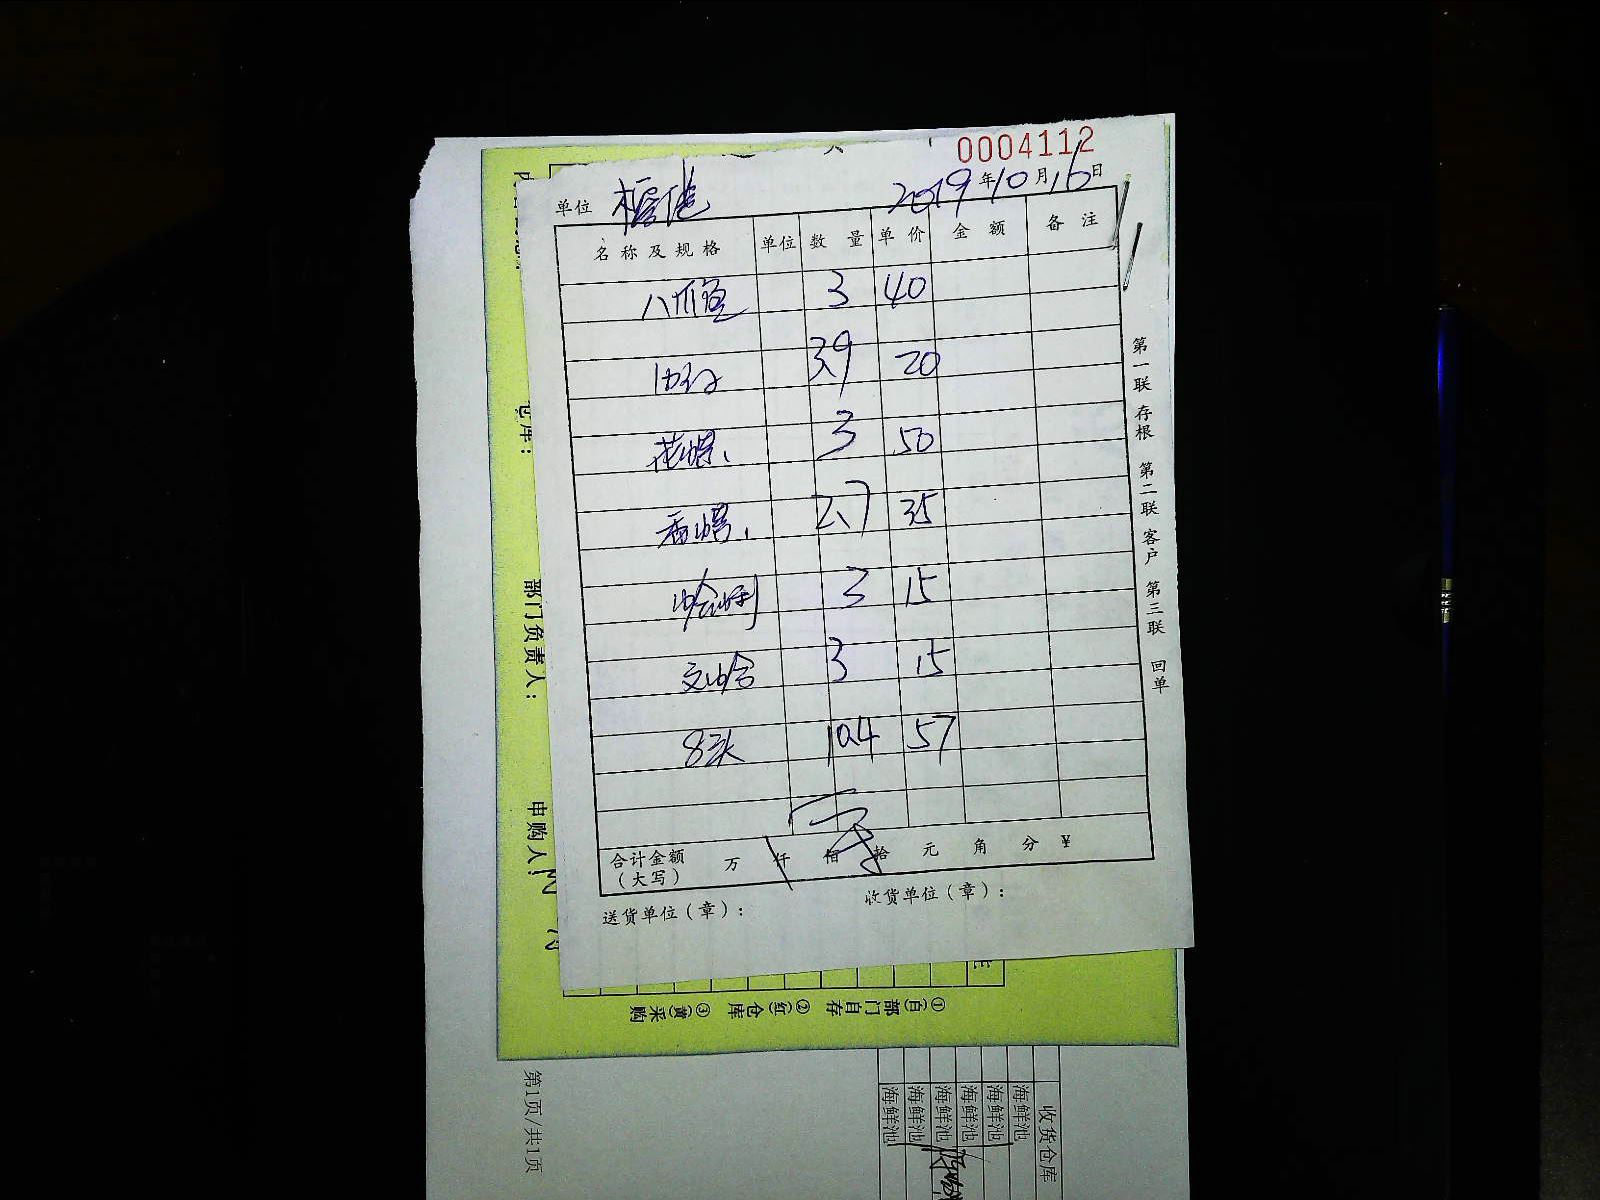 0004112
单位 2019年10月16日
名称及规格 单位 数量 单价 金额 备注
八爪鱼 3 40
3.9 20
花螺 3 50
香螺 2.7 35
蛤蜊 3 15
文蛤 3 15
8头 10.4 57
合计金额(大写) 万 仟 佰 拾 元 角 分 ¥
送货单位(章): 收货单位(章):
第一联 存根 第二联 客户 第三联 回单
仓库:
部门负责人:
申购人:
①(白)部门自存 ②(红)仓库 ③(黄)采购
第1页/共1页
收货仓库
海鲜池
海鲜池
海鲜池
海鲜池
海鲜池
海鲜池